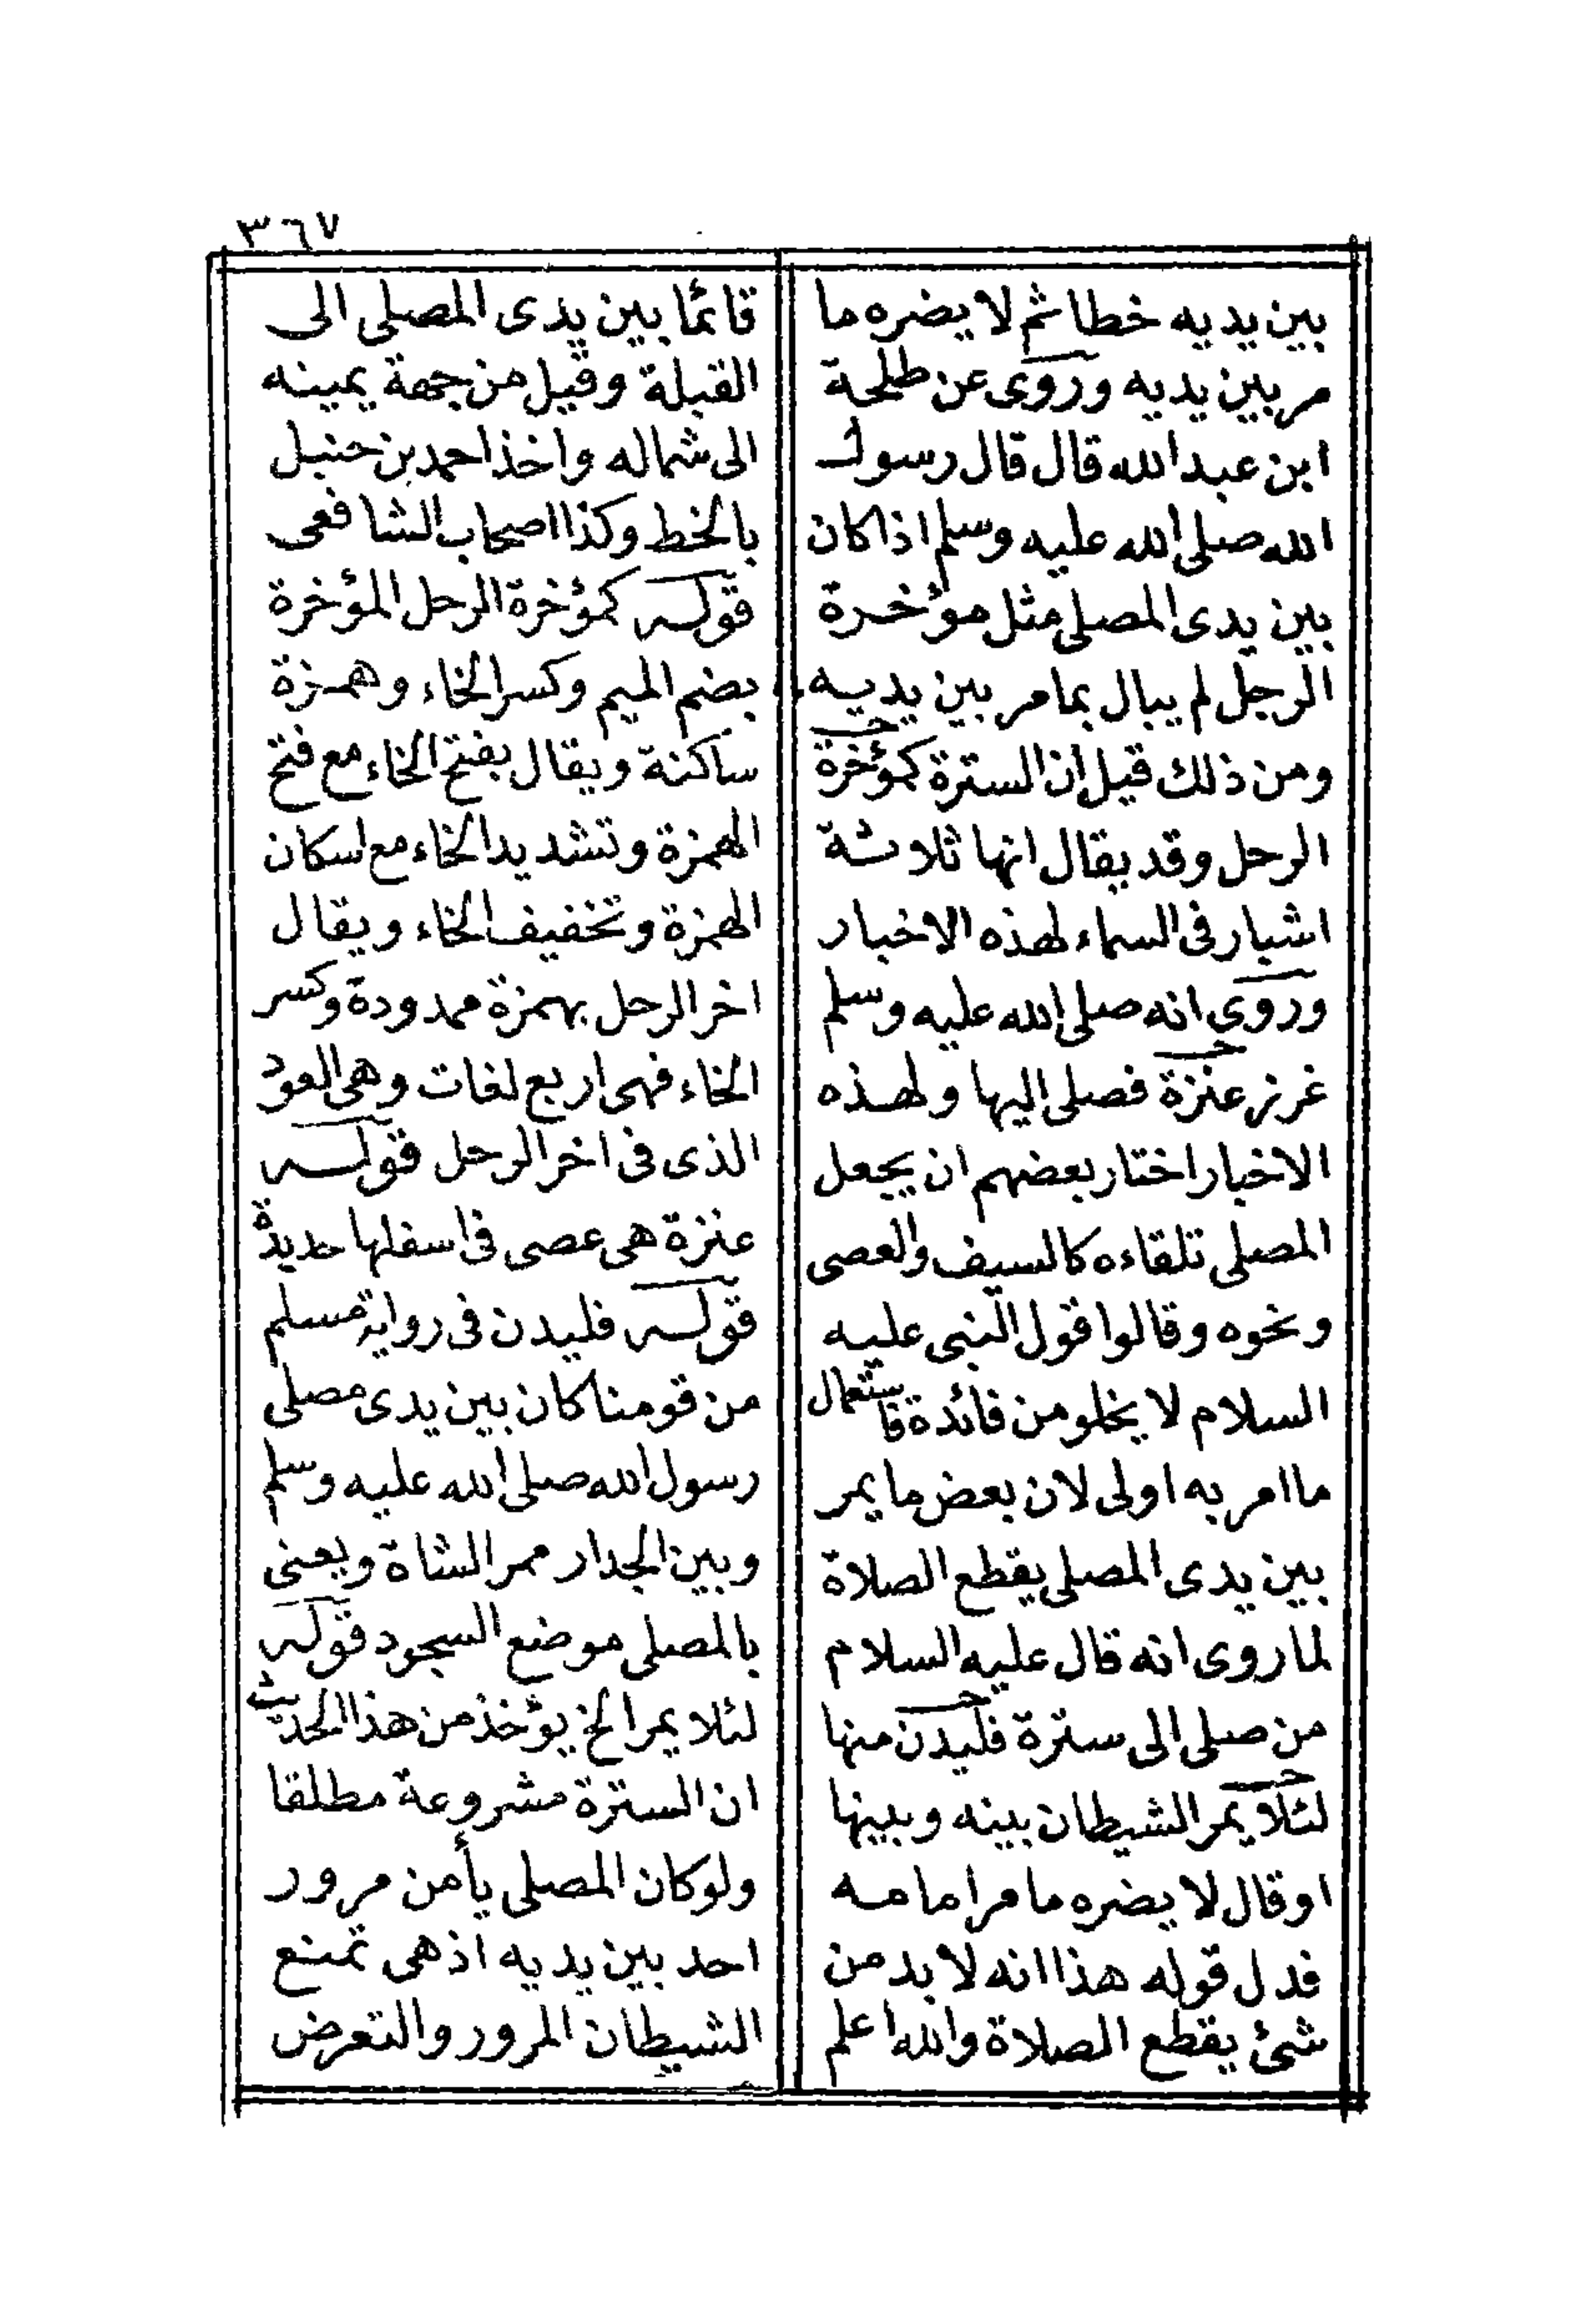 ٣٦٧
بين يديه خطا ثم لا يضره ما
مر بين يديه وروى عن طلحة
ابن عبد الله قال قال رسول
الله صلى الله عليه وسلم اذا كان
بين يدى المصلى مثل مؤخرة
الرجل لم يبال بما مر بين يديه
ومن ذلك قيل ان السترة كمؤخرة
الرحل وقد يقال انها ثلاثة
اشبار فى السماء لهذه الاخبار
وروى انه صلى الله عليه وسلم
غرز عنزة فصلى اليها ولهذه
الاخبار اختار بعضهم ان يجعل
المصلى تلقاءه كالسيف والعصى
ونحوه وقالوا قول النبى عليه
السلام لا يخلو من فائدة فاستعمال
ما امر به اولى لان بعض ما يمر
بين يدى المصلى يقطع الصلاة
لما روى انه قال عليه السلام
من صلى الى سترة فليدن منها
لئلا يمر الشيطان بينه وبينها
او قال لا يضره ما مر امامه
فدل قوله هذا انه لا بد من
شئ يقطع الصلاة والله اعلم
قائما بين يدى المصلى الى
القبلة وقيل من جهة يمينه
الى شماله واخذ احمد بن حنبل
بالخط وكذا اصحاب الشافعى
قوله كمؤخرة الرحل المؤخرة
بضم الميم وكسر الخاء وهمزة
ساكنة ويقال بفتح الخاء مع فتح
الهمزة وتشديد الخاء مع اسكان
الهمزة وتخفيف الخاء ويقال
اخر الرحل بهمزة ممدودة وكسر
الخاء فهى اربع لغات وهى العود
الذى فى اخر الرحل قوله
عنزة هى عصى فى اسفلها حديدة
قوله فليدن فى رواية مسلم
من قومنا كان بين يدى مصلى
رسول الله صلى الله عليه وسلم
وبين الجدار ممر الشاة ويعنى
بالمصلى موضع السجود قوله
لئلا يمر الخ يؤخذ من هذا الحديث
ان السترة مشروعة مطلقا
ولو كان المصلى يأمن مرور
احد بين يديه اذ هى تمنع
الشيطان المرور والتعرض